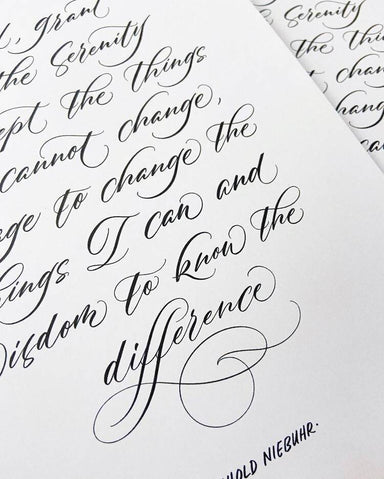 d, grant
the Serenity
ept the things
cannot change,
age to change the
hings I can and
wisdom to know the
difference
HOLD NIEBUHR.
Serenity
the thin